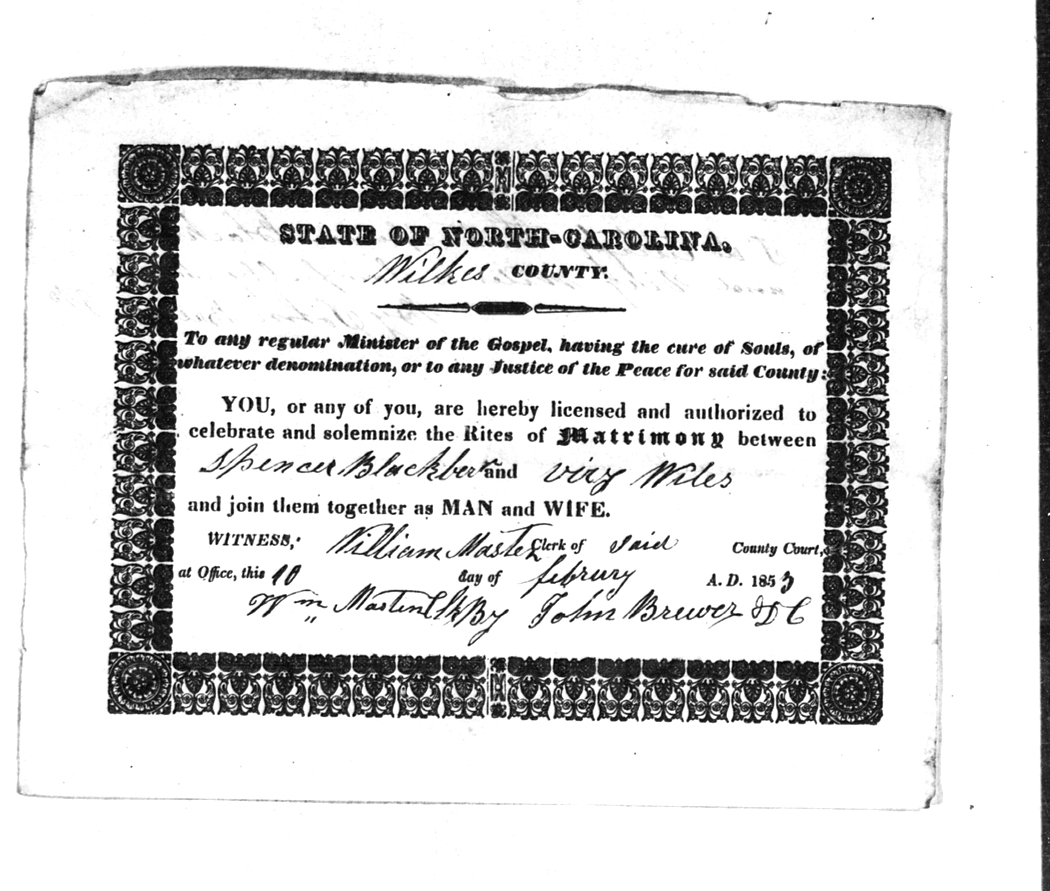 STATE OF NORTH-CAROLINA.
Wilkes COUNTY.
To any regular Minister of the Gospel, having the cure of Souls, of
whatever denomination, or to any Justice of the Peace for said County:
YOU, or any of you, are hereby licensed and authorized to
celebrate and solemnize the Rites of Matrimony between
Spencer Blackber and viry Wiles
and join them together as MAN and WIFE.
WITNESS, William Masten Clerk of said County Court,
at Office, this 10 day of februry A. D. 1853
Wm Masten Clk By John Brewer D C